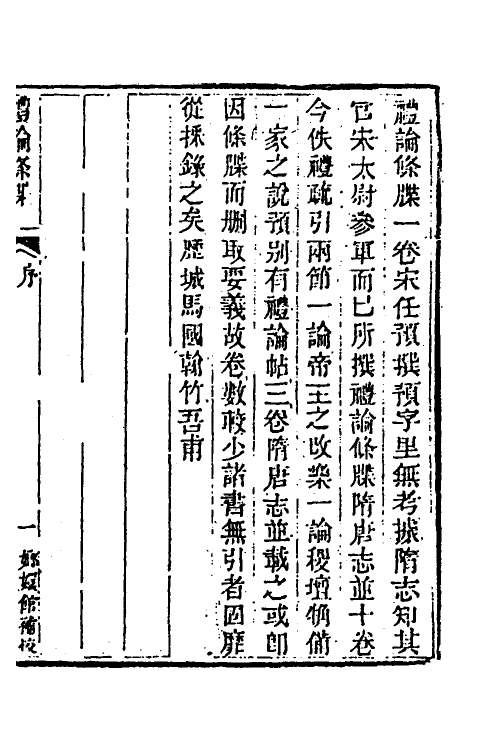 禮論條牒一卷宋任預撰預字里無考據隋志知其
官宋太尉參軍而已所撰禮論條牒隋唐志並十卷
今佚禮疏引兩節一論帝王之改樂一論稷壇犓備
一家之說預别有禮論帖三卷隋唐志並載之或即
因條牒而刪取要義故卷數較少諸書無引者固靡
從採錄之矣歷城馬國翰竹吾甫
禮論條牒
序
一
嫏嬛館補校